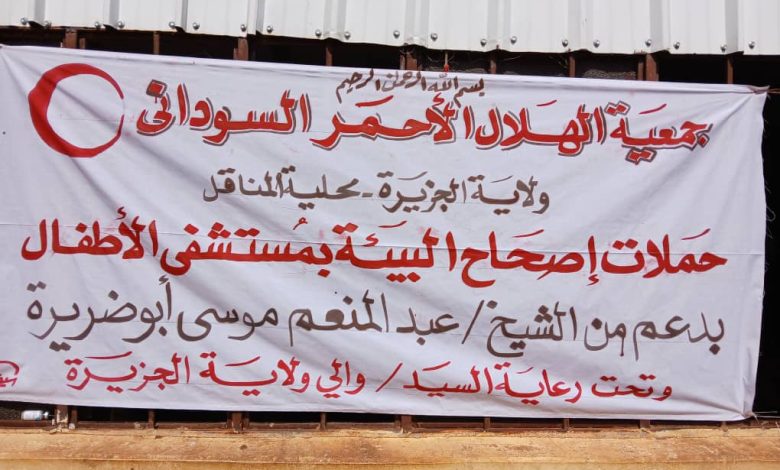 بسم الله الرحمن الرحيم
جمعية الهلال الأحمر السوداني
ولاية الجزيرة - محلية المناقل
حملات إصحاح البيئة بمُستشفى الأطفال
بدعم من الشيخ / عبد المنعم موسى أبو ضريرة
وتحت رعاية السيد / والي ولاية الجزيرة